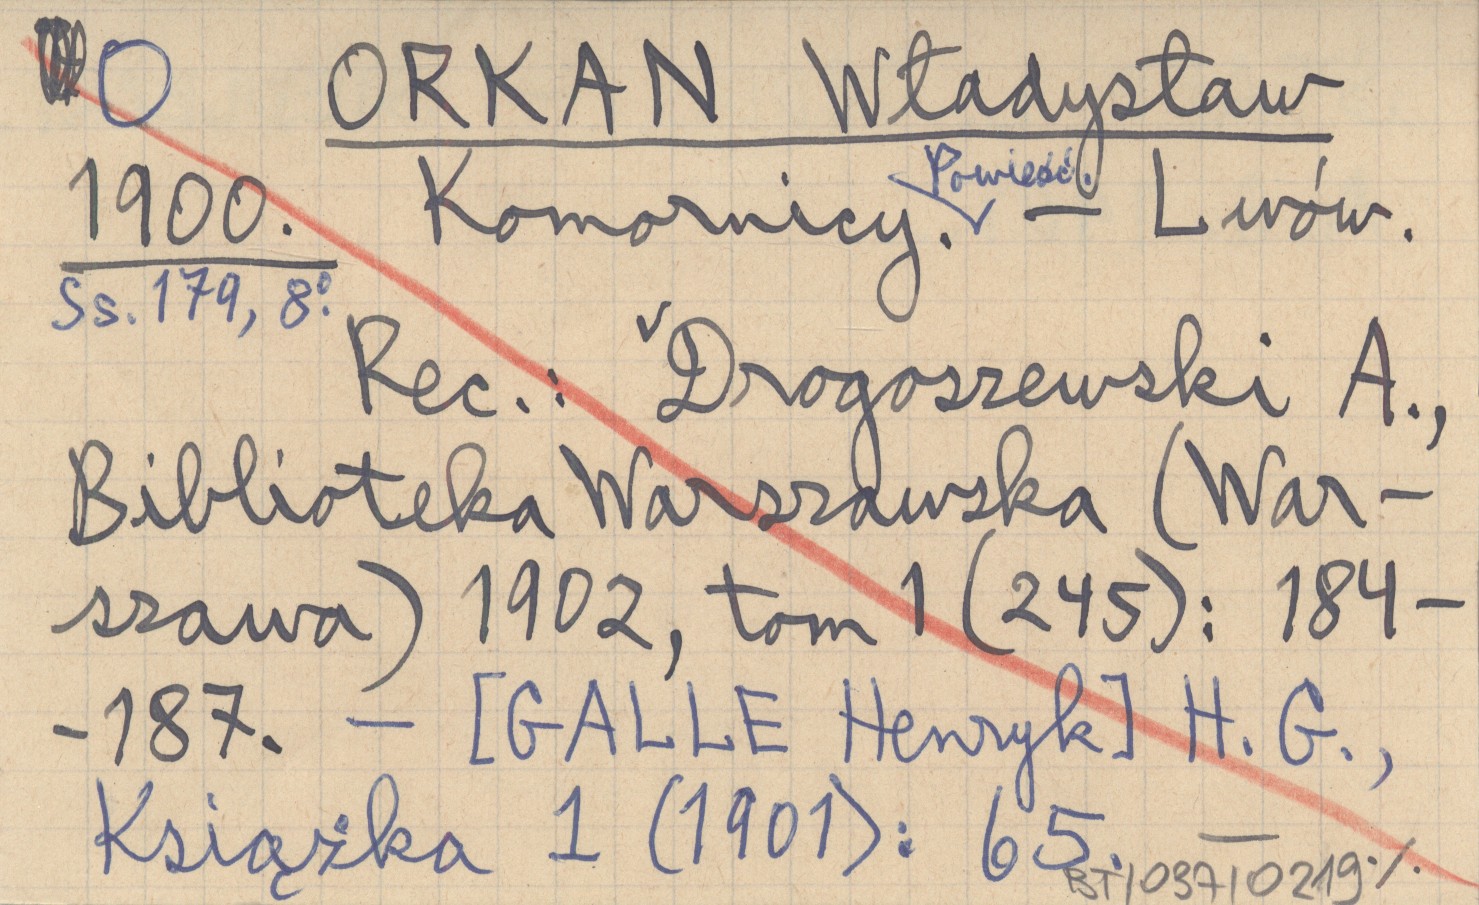 O ORKAN Władysław
1900. Komornicy. Powieść. — Lwów.
Ss. 179, 8°.
Rec.: Drogoszewski A.,
Biblioteka Warszawska (War-
szawa) 1902, tom 1 (245): 184-
-187. — [GALLE Henryk] H. G.,
Książka 1 (1901): 65. — ·/.
BT/037/0219